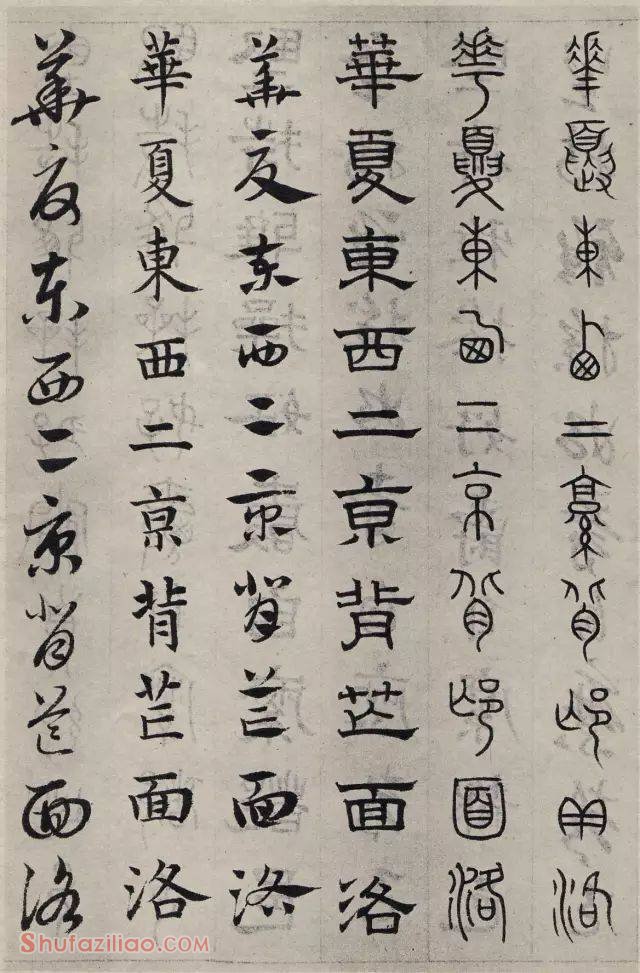 華夏東西二京背邙面洛
華夏東西二京背邙面洛
華夏東西二京背芒面洛
華夏東西二京背芒面洛
華夏東西二京背芒面洛
華夏東西二京背芒面洛
Shufaziliao.COM